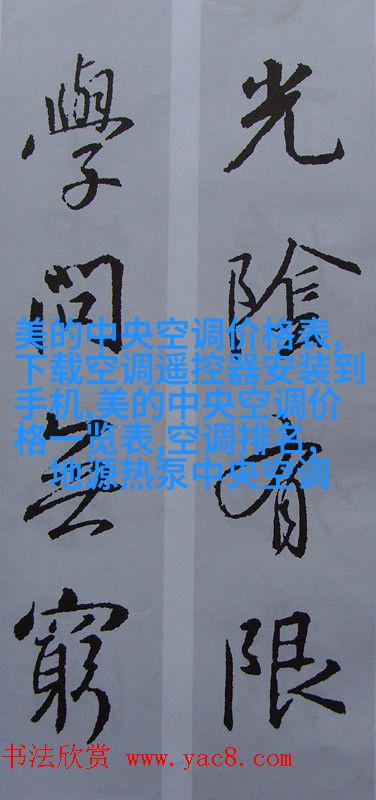 光陰有限
學問無窮
美的中央空调价格表,
下载空调遥控器安装到
手机,美的中央空调价
格一览表,空调排名,
地源热泵中央空调
书法欣赏 www.yac8.com